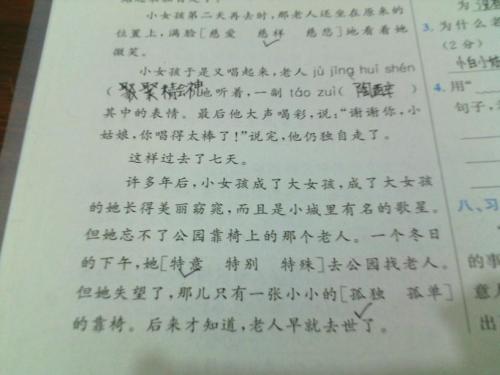 小女孩第二天再去时,那老人还坐在原来的
位置上,满脸[慈爱 慈祥 慈悲]地看着她
微笑。
小女孩于是又唱起来,老人 jù jīng huì shén
(聚精会神)地听着,一副 táo zuì(陶醉)
其中的表情。最后他大声喝彩,说:“谢谢你,小
姑娘,你唱得太棒了!”说完,他仍独自走了。
这样过去了七天。
许多年后,小女孩成了大女孩,成了大女孩
的她长得美丽窈窕,而且是小城里有名的歌星。
但她忘不了公园靠椅上的那个老人。一个冬日
的下午,她[特意 特别 特殊]去公园找老人。
但她失望了,那儿只有一张小小的[孤独 孤单]
的靠椅。后来才知道,老人早就去世了。
3. 为什么老
(2分)
4. 用“
句子,
八、习
的事
意人
出